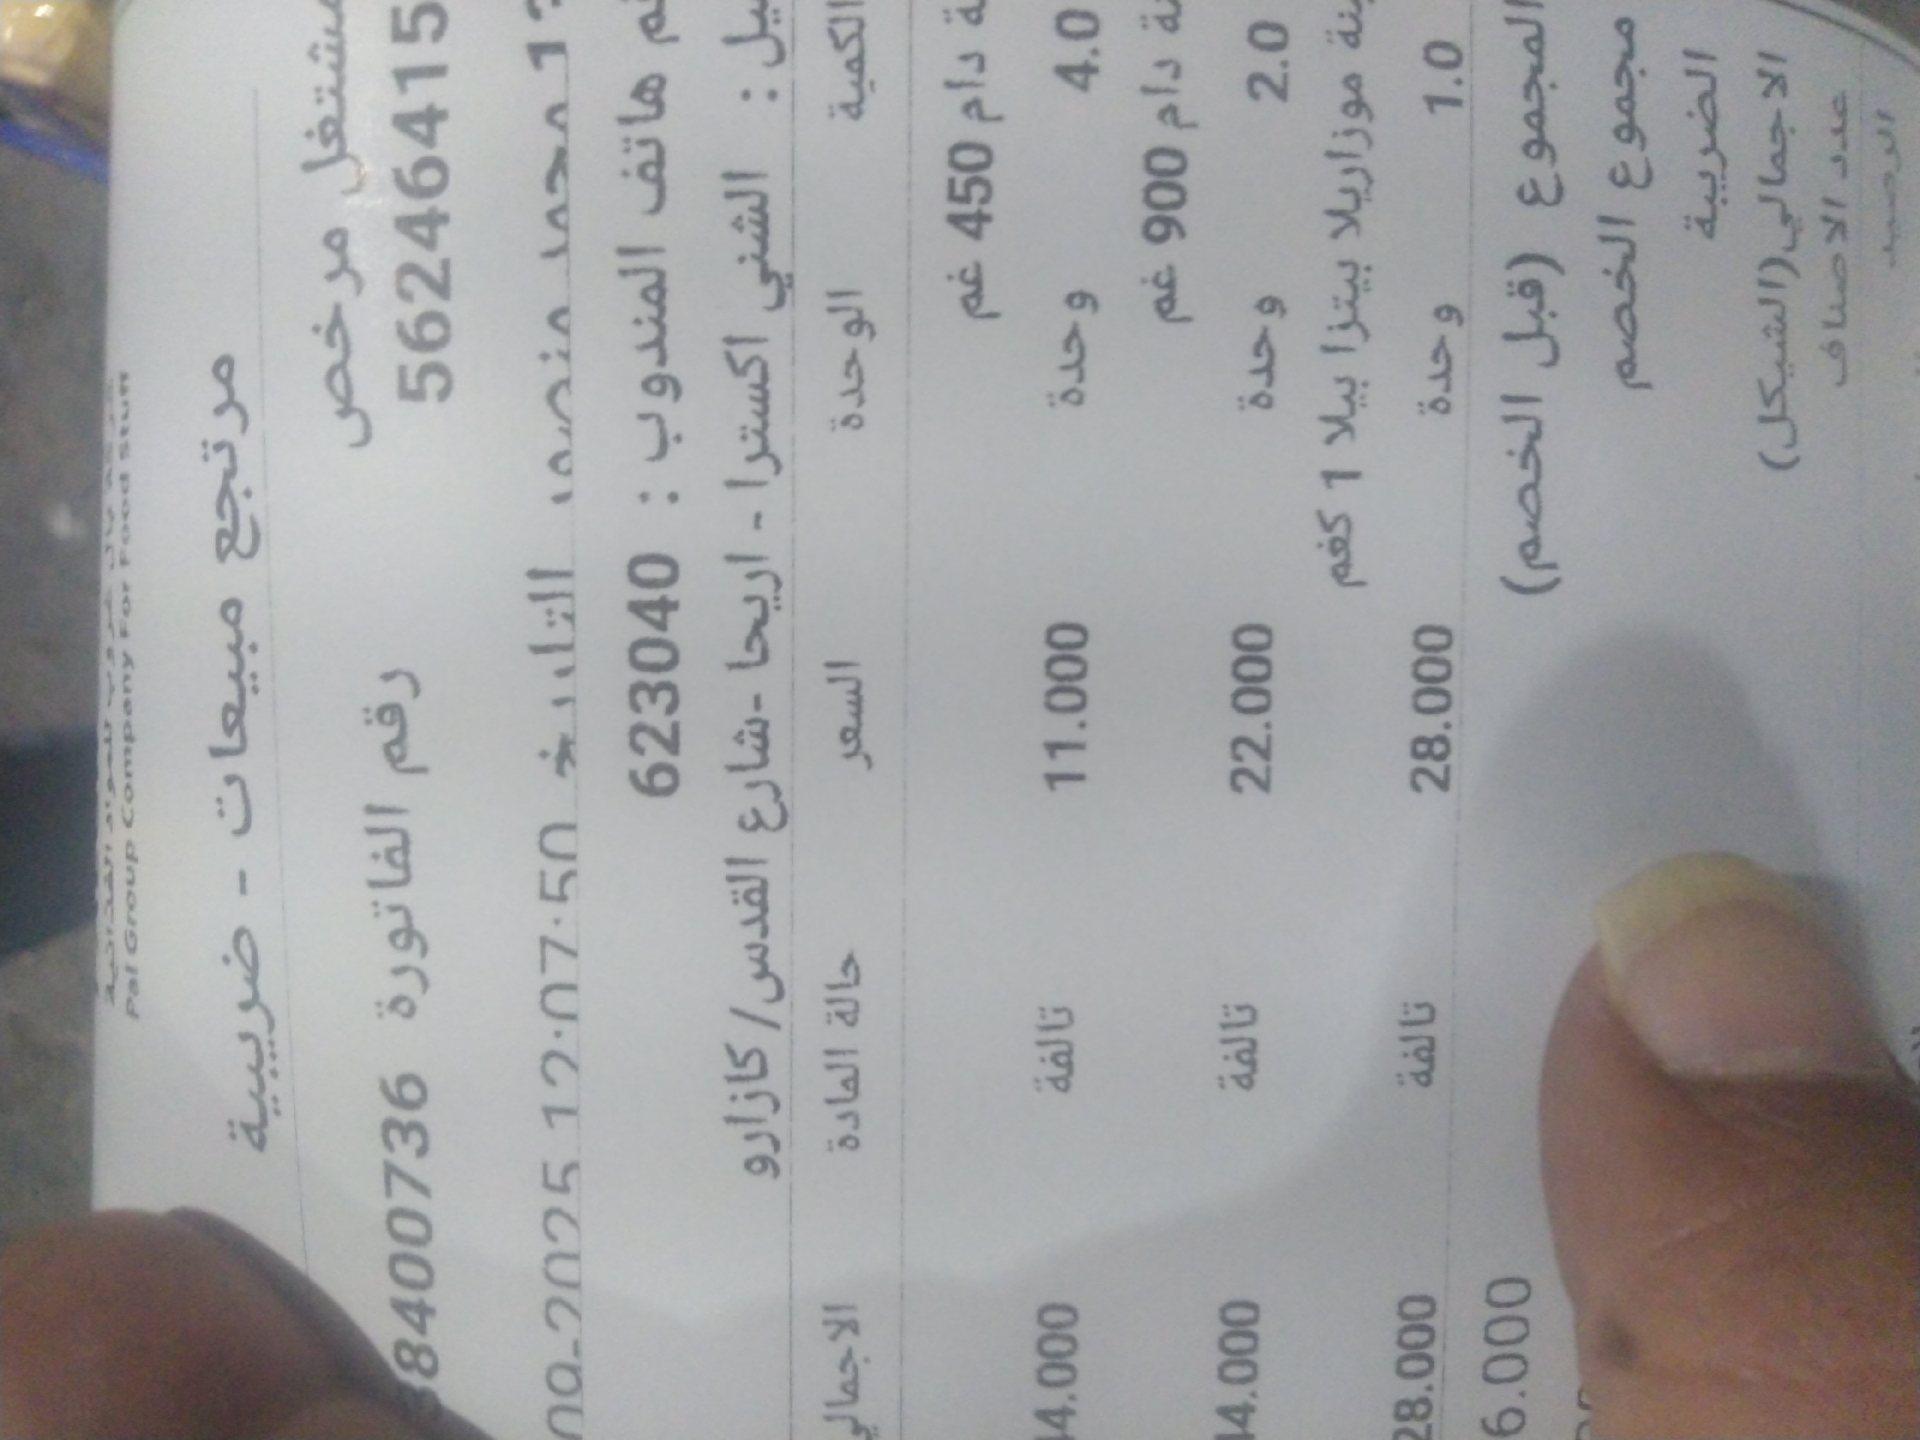 شركة بال جروب للمواد الغذائية
Pal Group Company For Food Stuff
مرتجع مبيعات - ضريبية
مشتغل مرخص
562246415 رقم الفاتورة 8400736
محمد منصور التاريخ 09-2025 12:07:50
هاتف المندوب : 623040
الشني اكسترا - اريحا -شارع القدس/كازارو
الكمية الوحدة السعر حالة المادة الاجمالي
دام 450 غم
4.0 وحدة 11.000 تالفة 44.000
دام 900 غم
2.0 وحدة 22.000 تالفة 44.000
موزاريلا بيتزا بيلا 1 كغم
1.0 وحدة 28.000 تالفة 28.000
المجموع (قبل الخصم) 6.000
مجموع الخصم
الضريبة
الاجمالي(الشيكل)
عدد الاصناف
الرصيد